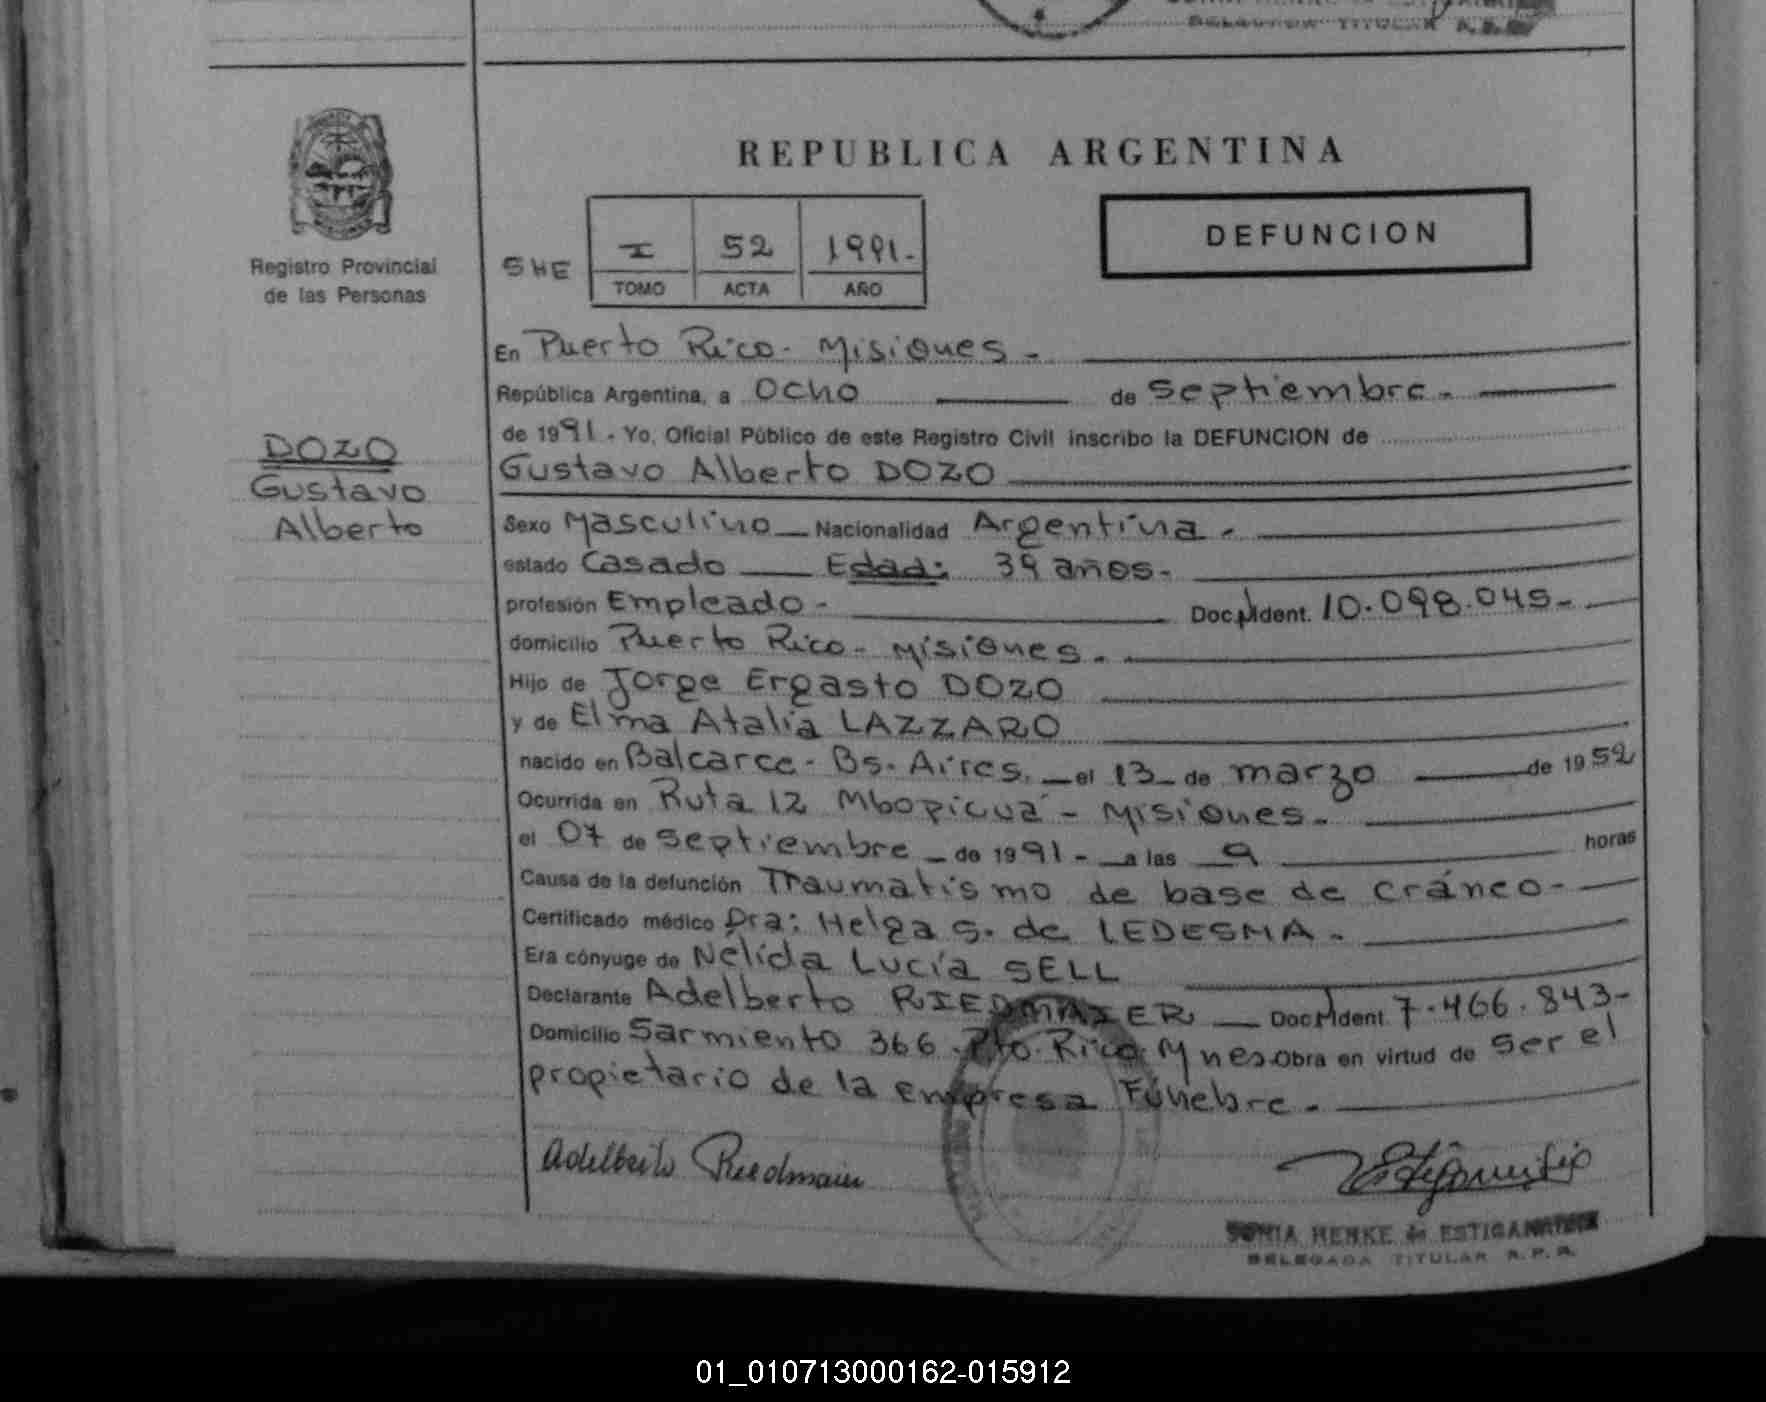 DELEGADA TITULAR A.P.R.
REPUBLICA ARGENTINA
DEFUNCION
SHE
I 52 1991.-
TOMO ACTA AÑO
Registro Provincial
de las Personas
DOZO
Gustavo
Alberto
En Puerto Rico - Misiones -
República Argentina, a Ocho de Septiembre -
de 1991. Yo, Oficial Público de este Registro Civil inscribo la DEFUNCION de
Gustavo Alberto DOZO
Sexo Masculino Nacionalidad Argentina -
estado Casado Edad: 39 años -
profesión Empleado - Doc. N Ident. 10.098.045 -
domicilio Puerto Rico - Misiones -
Hijo de Jorge Ergasto DOZO
y de Elma Atalia LAZZARO
nacido en Balcarce - Bs. Aires. el 13 de marzo de 1952
Ocurrida en Ruta 12 Mbopicuá - Misiones -
el 07 de Septiembre de 1991 - a las 9 horas
Causa de la defunción Traumatismo de base de cráneo -
Certificado médico Dra: Helga S. de LEDESMA -
Era cónyuge de Nélida Lucía SELL
Declarante Adelberto RIEDMAIER Doc. N Ident. 7.466.843 -
Domicilio Sarmiento 366 - Pto. Rico - Mnes Obra en virtud de ser el
propietario de la empresa Fúnebre -
Adelberto Riedmaier
SONIA HENKE de ESTIGARRIBIA
DELEGADA TITULAR A.P.R.
01_010713000162-015912